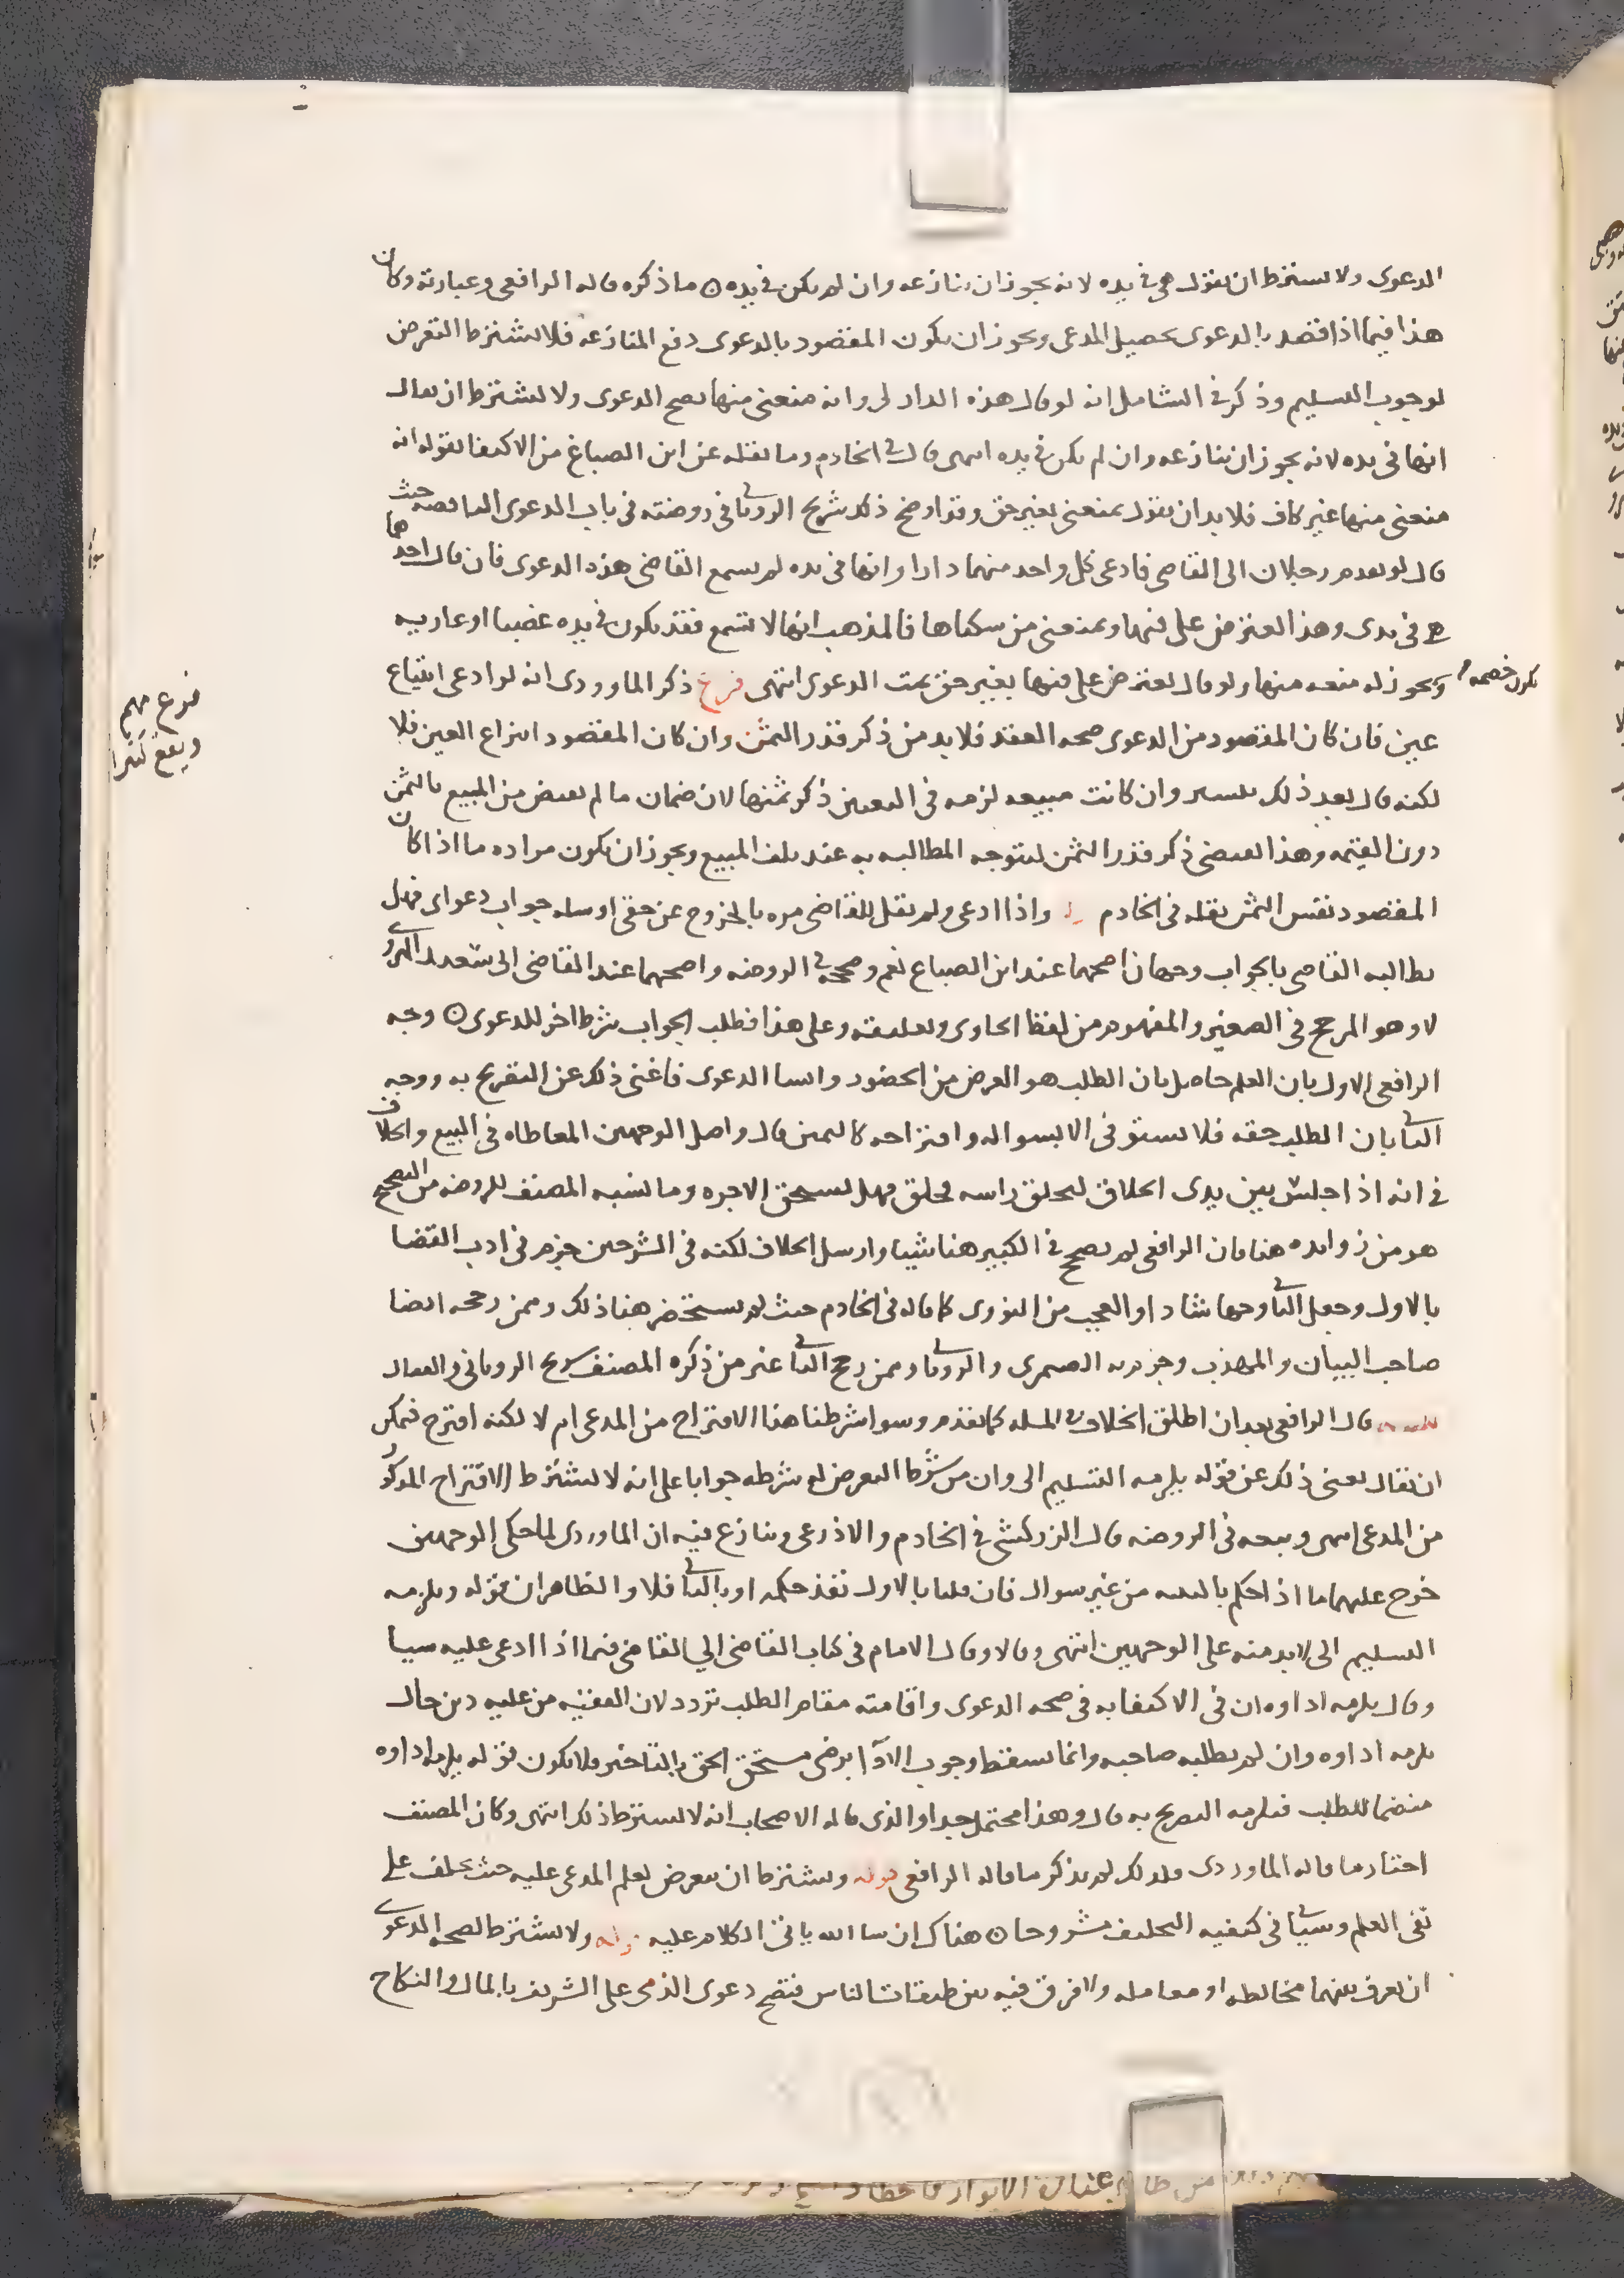 الدعوى ولا يشترط ان يقول هي في يده لانه يجوز ان ينازعه وان لم يكن في يده ه ما ذكره قاله الرافعي وعبارته وكان
هذا فيما اذا قصد بالدعوى تحصيل المدعى ويجوز ان يكون المقصود بالدعوى دفع المنازعه فلا يشترط التعرض
لوجوب التسليم وذكر في الشامل انه لو قال هذه الدار لي وانه منعني منها تصح الدعوى ولا يشترط ان يقال
انها في يده لانه يجوز ان ينازعه وان لم يكن في يده انتهى قال في الخادم وما نقله عن ابن الصباغ من الاكتفا بقوله انه
منعني منها غير كاف فلا بد ان يقول يمنعني بغير حق وقد اوضح ذلك شريح الروياني في روضته في باب الدعوى الناقصه حيث
قال لو تقدم رجلان الى القاضي فادعى كل واحد منهما دارا وانها في يده لم يسمع القاضي هذه الدعوى فان قال احدهما
هي في يدي وهذا يعترض علي فيها ويمنعني من سكناها فالمذهب انها لا تسمع فقد يكون في يده غصبا او عاريه
ويجوز له منعه منها ولو قال يعترض علي فيها بغير حق تمت الدعوى انتهى فرع ذكر الماوردي انه لو ادعى ابتياع
يكون خصمه
عين فان كان المقصود من الدعوى صحه العقد فلا بد من ذكر قدر الثمن وان كان المقصود انتزاع العين فلا
فرع مهم
ويقع كثيرا
لكنه قال بعد ذلك بيسير وان كانت مبيعه لزمه في التعيين ذكر ثمنها لان ضمان ما لم يقبض من المبيع بالثمن
دون القيمه وهذا يقتضي ذكر قدر الثمن لتتوجه المطالبه به عند تلف المبيع ويجوز ان يكون مراده ما اذا كان
المقصود نفس الثمن نقله في الخادم واذا ادعى ولم يقل للقاضي مره بالخروج عن حقي او سله جواب دعواي فهل
يطالبه القاضي بالجواب وجهان اصحهما عند ابن الصباغ نعم وصححه في الروضه واصحهما عند القاضي ابي سعد الهروي
لا وهو المرجح في الصغير والمفهوم من لفظ الحاوي وتعليقته وعلى هذا فطلب الجواب شرط اخر للدعوى ه وجه
الرافعي الاول بان العلم حاصل بان الطلب هو الغرض من الحضور وانشا الدعوى فاغنى ذلك عن التصريح به ووجه
الثاني بان الطلب حقه فلا يستوفى الا بسواله واقتراحه كاليمين قال واصل الوجهين المعاطاه في البيع والخلاف
في انه اذا جلس بين يدي الحلاق ليحلق راسه فحلق فهل يستحق الاجره وما نسبه المصنف للروضه من التصحيح
هو من زوايده هنا فان الرافعي لم يصحح في الكبير هنا شيئا وارسل الخلاف لكنه في الشرحين جزم في ادب القضا
بالاول وجعل الثاني وجها شاذا والعجب من النووي كما قاله في الخادم حيث لم يستحضر هنا ذلك وممن رجحه ايضا
صاحب البيان والمهذب وجزم به الصيمري والروياني وممن رجح الثاني غير من ذكره المصنف شريح الروياني والقفال
قال الرافعي بعد ان اطلق الخلاف في المسله كما تقدم وسوا شرطنا هذا الاقتراح من المدعي ام لا لكنه اقترح فيمكن
ان يقال يغني ذلك عن قوله يلزمه التسليم الي وان من شرط التعرض له شرطه جوابا على انه لا يشترط الاقتراح المذكور
من المدعي انتهى وتبعه في الروضه قال الزركشي في الخادم والاذرعي وينازع فيه ان الماوردي لما حكى الوجهين
خرج عليهما ما اذا حكم بالبينه من غير سوال فان قلنا بالاول نفذ حكمه او بالثاني فلا والظاهر ان قوله ويلزمه
التسليم الي لا بد منه على الوجهين انتهى وقالا وقال الامام في كتاب القاضي الي القاضي فيما اذا ادعى عليه شيا
وقال يلزمه اداوه ان في الاكتفا به في صحه الدعوى واقامته مقام الطلب تردد لان الفقيه من عليه دين حال
يلزمه اداوه وان لم يطلبه صاحبه وانما يسقط وجوب الادا برضى مستحق الحق بالتاخير فلا يكون قوله يلزمه اداوه
متضمنا للطلب فيلزمه التصريح به قال وهذا محتمل جدا والذي قاله الاصحاب انه لا يشترط ذلك انتهى وكان المصنف
اختار ما قاله الماوردي فلذلك لم يذكر ما قاله الرافعي قوله ويشترط ان يتعرض لعلم المدعى عليه حيث يحلف على
نفي العلم وسياتي في كيفيه التحليف مشروحا ه هناك ان شا الله ياتي الكلام عليه قوله ولا يشترط لصحه الدعوى
ان يعرف بينهما مخالطه او معامله ولا فرق فيه بين طبقات الناس فتصح دعوى الذمي على الشريف بالمال والنكاح